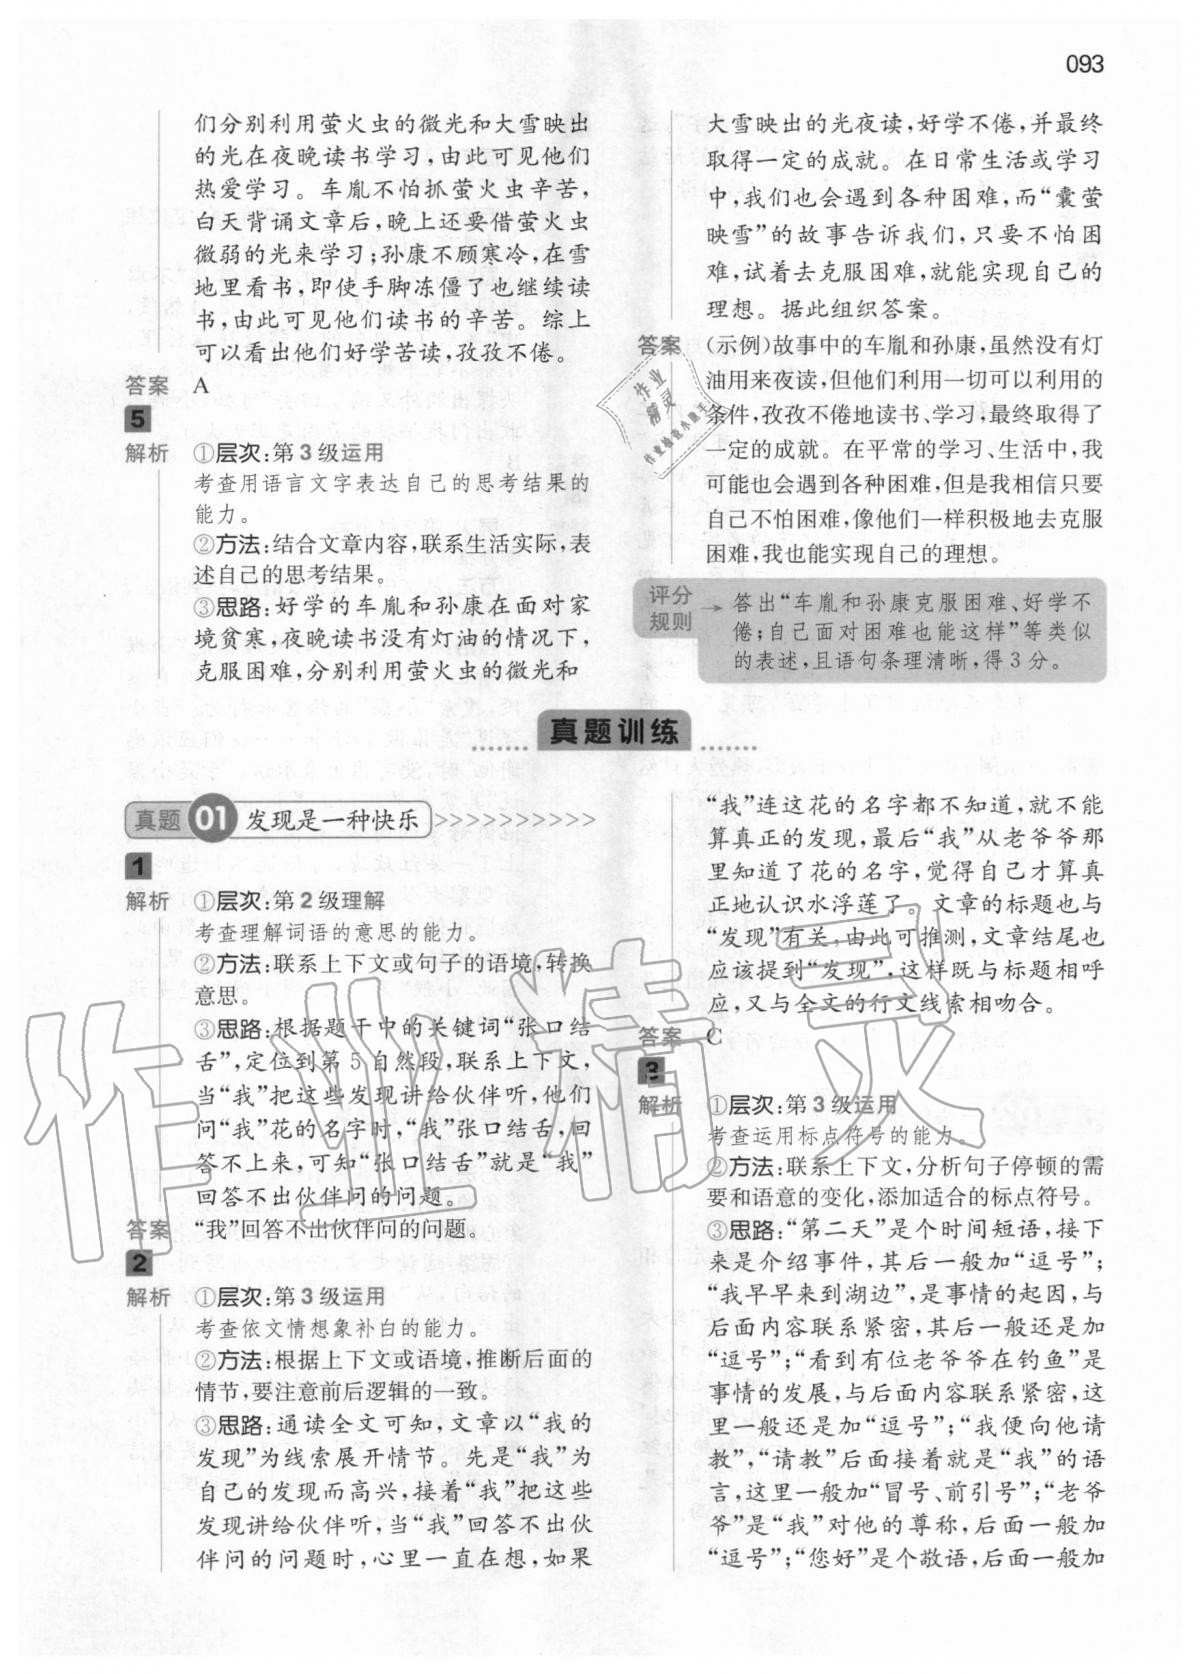 093
们分别利用萤火虫的微光和大雪映出
的光在夜晚读书学习，由此可见他们
热爱学习。车胤不怕抓萤火虫辛苦，
白天背诵文章后，晚上还要借萤火虫
微弱的光来学习；孙康不顾寒冷，在雪
地里看书，即使手脚冻僵了也继续读
书，由此可见他们读书的辛苦。综上
可以看出他们好学苦读，孜孜不倦。
答案 A
5
解析 ①层次：第3级运用
考查用语言文字表达自己的思考结果的
能力。
②方法：结合文章内容，联系生活实际，表
述自己的思考结果。
③思路：好学的车胤和孙康在面对家
境贫寒，夜晚读书没有灯油的情况下，
克服困难，分别利用萤火虫的微光和
大雪映出的光夜读，好学不倦，并最终
取得一定的成就。在日常生活或学习
中，我们也会遇到各种困难，而“囊萤
映雪”的故事告诉我们，只要不怕困
难，试着去克服困难，就能实现自己的
理想。据此组织答案。
答案 (示例)故事中的车胤和孙康，虽然没有灯
油用来夜读，但他们利用一切可以利用的
条件，孜孜不倦地读书、学习，最终取得了
一定的成就。在平常的学习、生活中，我
可能也会遇到各种困难，但是我相信只要
自己不怕困难，像他们一样积极地去克服
困难，我也能实现自己的理想。
评分
规则
答出“车胤和孙康克服困难、好学不
倦；自己面对困难也能这样”等类似
的表述，且语句条理清晰，得3分。
真题训练
真题 01 发现是一种快乐
1
解析 ①层次：第2级理解
考查理解词语的意思的能力。
②方法：联系上下文或句子的语境，转换
意思。
③思路：根据题干中的关键词“张口结
舌”，定位到第5自然段，联系上下文，
当“我”把这些发现讲给伙伴听，他们
问“我”花的名字时，“我”张口结舌，回
答不上来，可知“张口结舌”就是“我”
回答不出伙伴问的问题。
答案 “我”回答不出伙伴问的问题。
2
解析 ①层次：第3级运用
考查依文情想象补白的能力。
②方法：根据上下文或语境，推断后面的
情节，要注意前后逻辑的一致。
③思路：通读全文可知，文章以“我的
发现”为线索展开情节。先是“我”为
自己的发现而高兴，接着“我”把这些
发现讲给伙伴听，当“我”回答不出伙
伴问的问题时，心里一直在想，如果
“我”连这花的名字都不知道，就不能
算真正的发现，最后“我”从老爷爷那
里知道了花的名字，觉得自己才算真
正地认识水浮莲了。文章的标题也与
“发现”有关，由此可推测，文章结尾也
应该提到“发现”，这样既与标题相呼
应，又与全文的行文线索相吻合。
答案 C
3
解析 ①层次：第3级运用
考查运用标点符号的能力。
②方法：联系上下文，分析句子停顿的需
要和语意的变化，添加适合的标点符号。
③思路：“第二天”是个时间短语，接下
来是介绍事件，其后一般加“逗号”；
“我早早来到湖边”，是事情的起因，与
后面内容联系紧密，其后一般还是加
“逗号”；“看到有位老爷爷在钓鱼”是
事情的发展，与后面内容联系紧密，这
里一般还是加“逗号”；“我便向他请
教”，“请教”后面接着就是“我”的语
言，这里一般加“冒号、前引号”；“老爷
爷”是“我”对他的尊称，后面一般加
“逗号”；“您好”是个敬语，后面一般加
作业精灵
作业
精灵